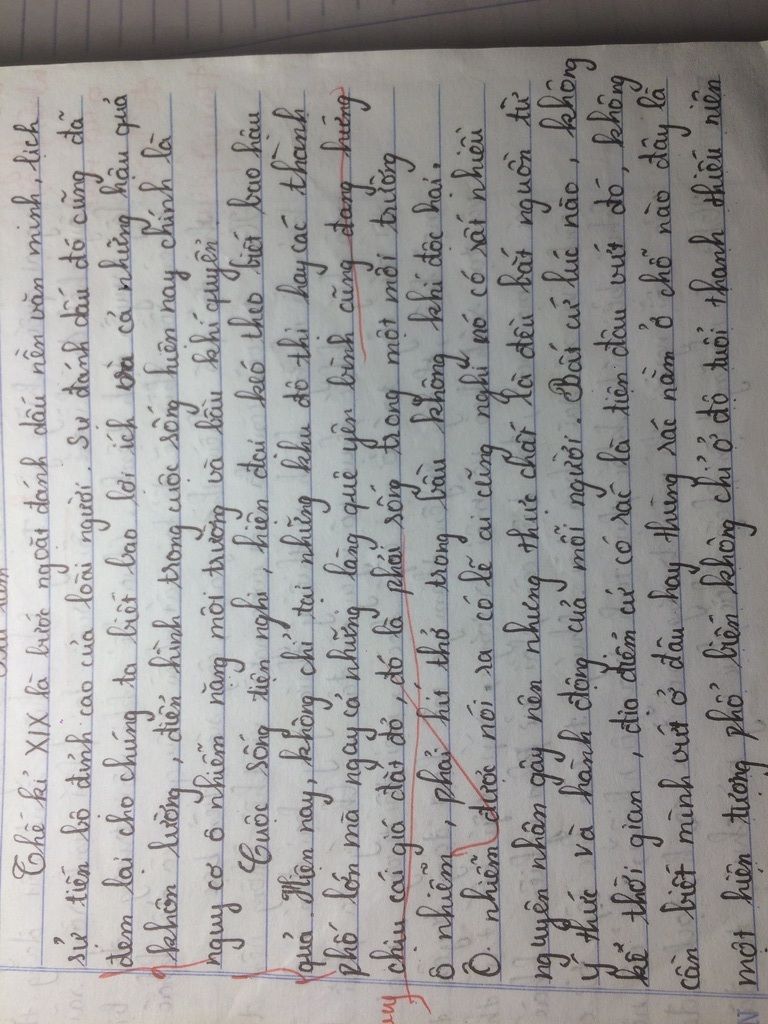 Thế kỉ XIX là bước ngoặt đánh dấu nền văn minh, lịch
sử tiến bộ đỉnh cao của loài người. Sự đánh dấu đó cũng đã
đem lại cho chúng ta biết bao lợi ích và cả những hậu quả
khôn lường, điển hình trong cuộc sống hiện nay chính là
nguy cơ ô nhiễm nặng môi trường và bầu khí quyển.
Cuộc sống tiện nghi, hiện đại kéo theo biết bao hậu
quả. Hiện nay, không chỉ tại những khu đô thị hay các thành
phố lớn mà ngay cả những làng quê yên bình cũng đang hứng
chịu cái giá đắt đó, đó là phải sống trong một môi trường
ô nhiễm, phải hít thở trong bầu không khí độc hại.
Ô nhiễm được nói ra có lẽ ai cũng nghĩ nó có rất nhiều
nguyên nhân gây nên nhưng thực chất là đều bắt nguồn từ
ý thức và hành động của mỗi người. Bất cứ lúc nào, không
kể thời gian, địa điểm cứ có rác là tiện đâu vứt đó, không
cần biết mình vứt ở đâu hay thùng rác nằm ở chỗ nào đây là
một hiện tượng phổ biến không chỉ ở độ tuổi thanh thiếu niên